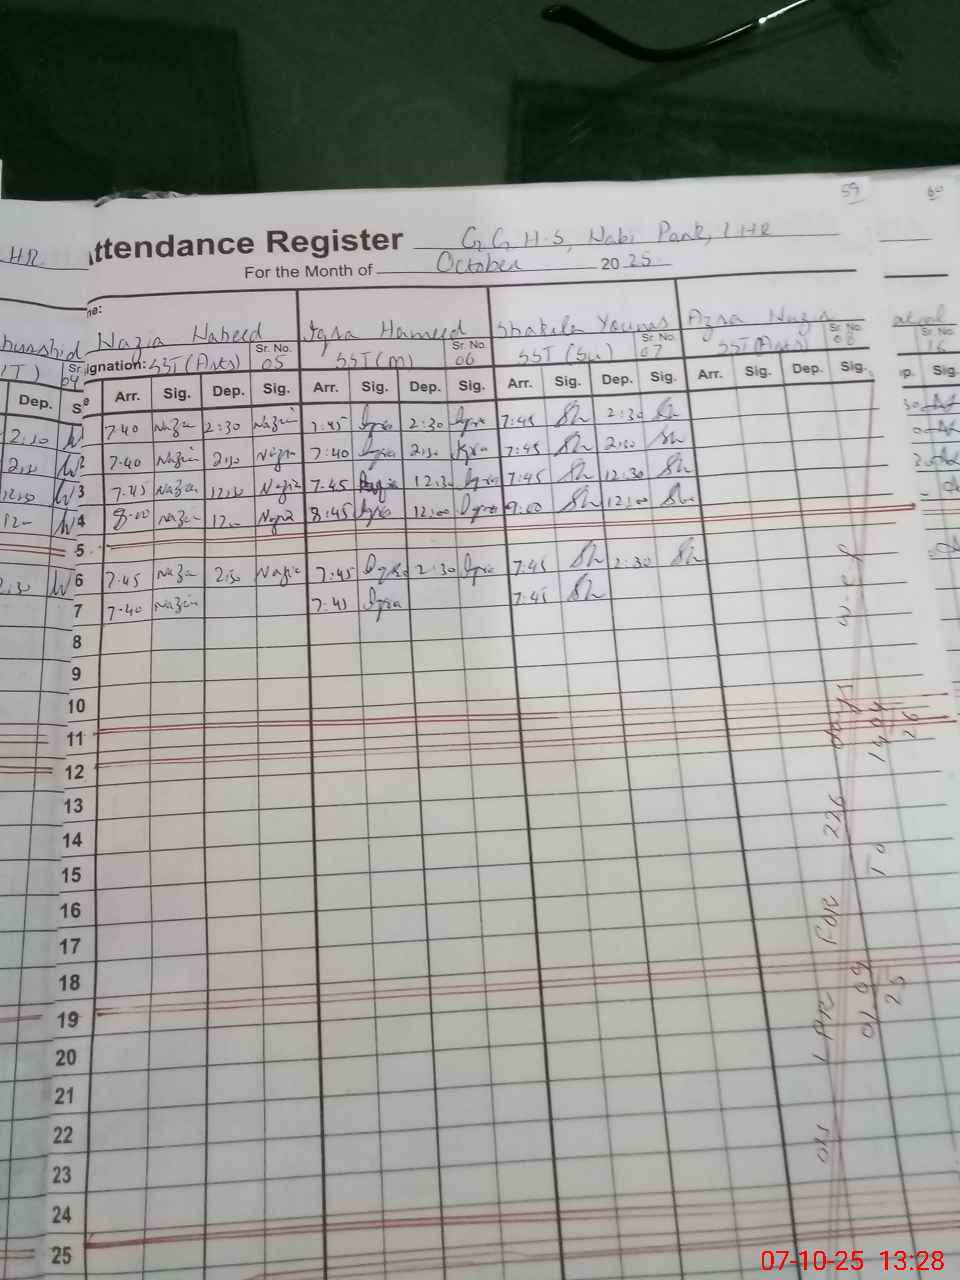 59
60
HR
Attendance Register G G H-S, Nabi Park, LHR
For the Month of October 2025
Nazia Nabeed Iqra Hameed Shakila Younas Azra Nazia
Designation: SST(Arts) Sr. No. 05 SST(M) Sr. No. 06 SST(Sci) Sr. No. 07 SST(Arts) Sr. No. 08 Sr No. 16
Sr 04
Dep. Arr. Sig. Dep. Sig. Arr. Sig. Dep. Sig. Arr. Sig. Dep. Sig. Arr. Sig. Dep. Sig. Sig.
2:30 7:40 Nazia 2:30 Nazia 7:45 Iqra 2:30 Iqra 7:45 Sh 2:30 Sh
2:30 2 7:40 Nazia 2:30 Nazia 7:40 Iqra 2:30 Iqra 7:45 Sh 2:30 Sh
12:30 3 7:45 Nazia 12:30 Nazia 7:45 Iqra 12:30 Iqra 7:45 Sh 12:30 Sh
12- 4 8:00 Nazia 12- Nazia 8:45 Iqra 12:00 Iqra 9:00 Sh 12:00 Sh
5
2:30 6 7:45 Nazia 2:30 Nazia 7:45 Iqra 2:30 Iqra 7:45 Sh 2:30 Sh
7 7:40 Nazia 7:45 Iqra 7:45 Sh
8
9
10
11
12
13
14
15
16
17
18
19
20
21
22
23
24
25
on LPR FOR 226 days w.e.f
01 09 25 TO 14 04 26
07-10-25 13:28